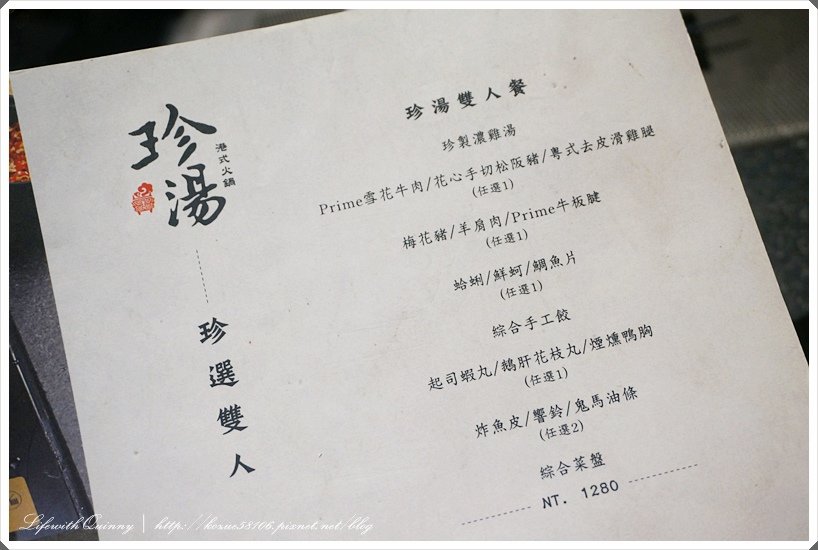 珍湯
港式火鍋
珍選雙人
珍湯雙人餐
珍製濃雞湯
Prime雪花牛肉/花心手切松阪豬/粵式去皮滑雞腿
(任選1)
梅花豬/羊肩肉/Prime牛板腱
(任選1)
蛤蜊/鮮蚵/鯛魚片
(任選1)
綜合手工餃
起司蝦丸/鵝肝花枝丸/煙燻鴨胸
(任選1)
炸魚皮/響鈴/鬼馬油條
(任選2)
綜合菜盤
NT. 1280
Lifewith Quinny | http://kozue58106.pixnet.net/blog